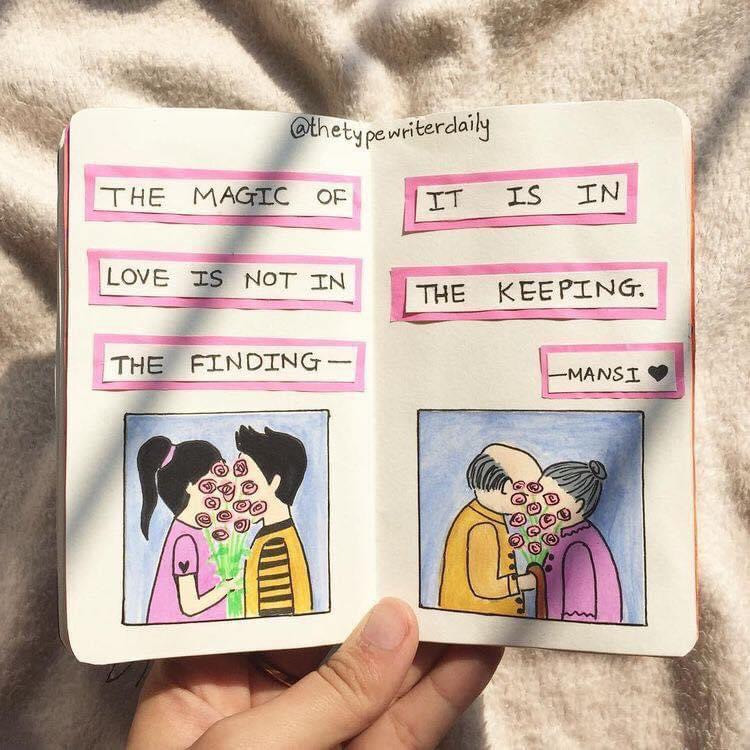 @thetypewriterdaily
THE MAGIC OF
LOVE IS NOT IN
THE FINDING —
IT IS IN
THE KEEPING.
—MANSI ♥